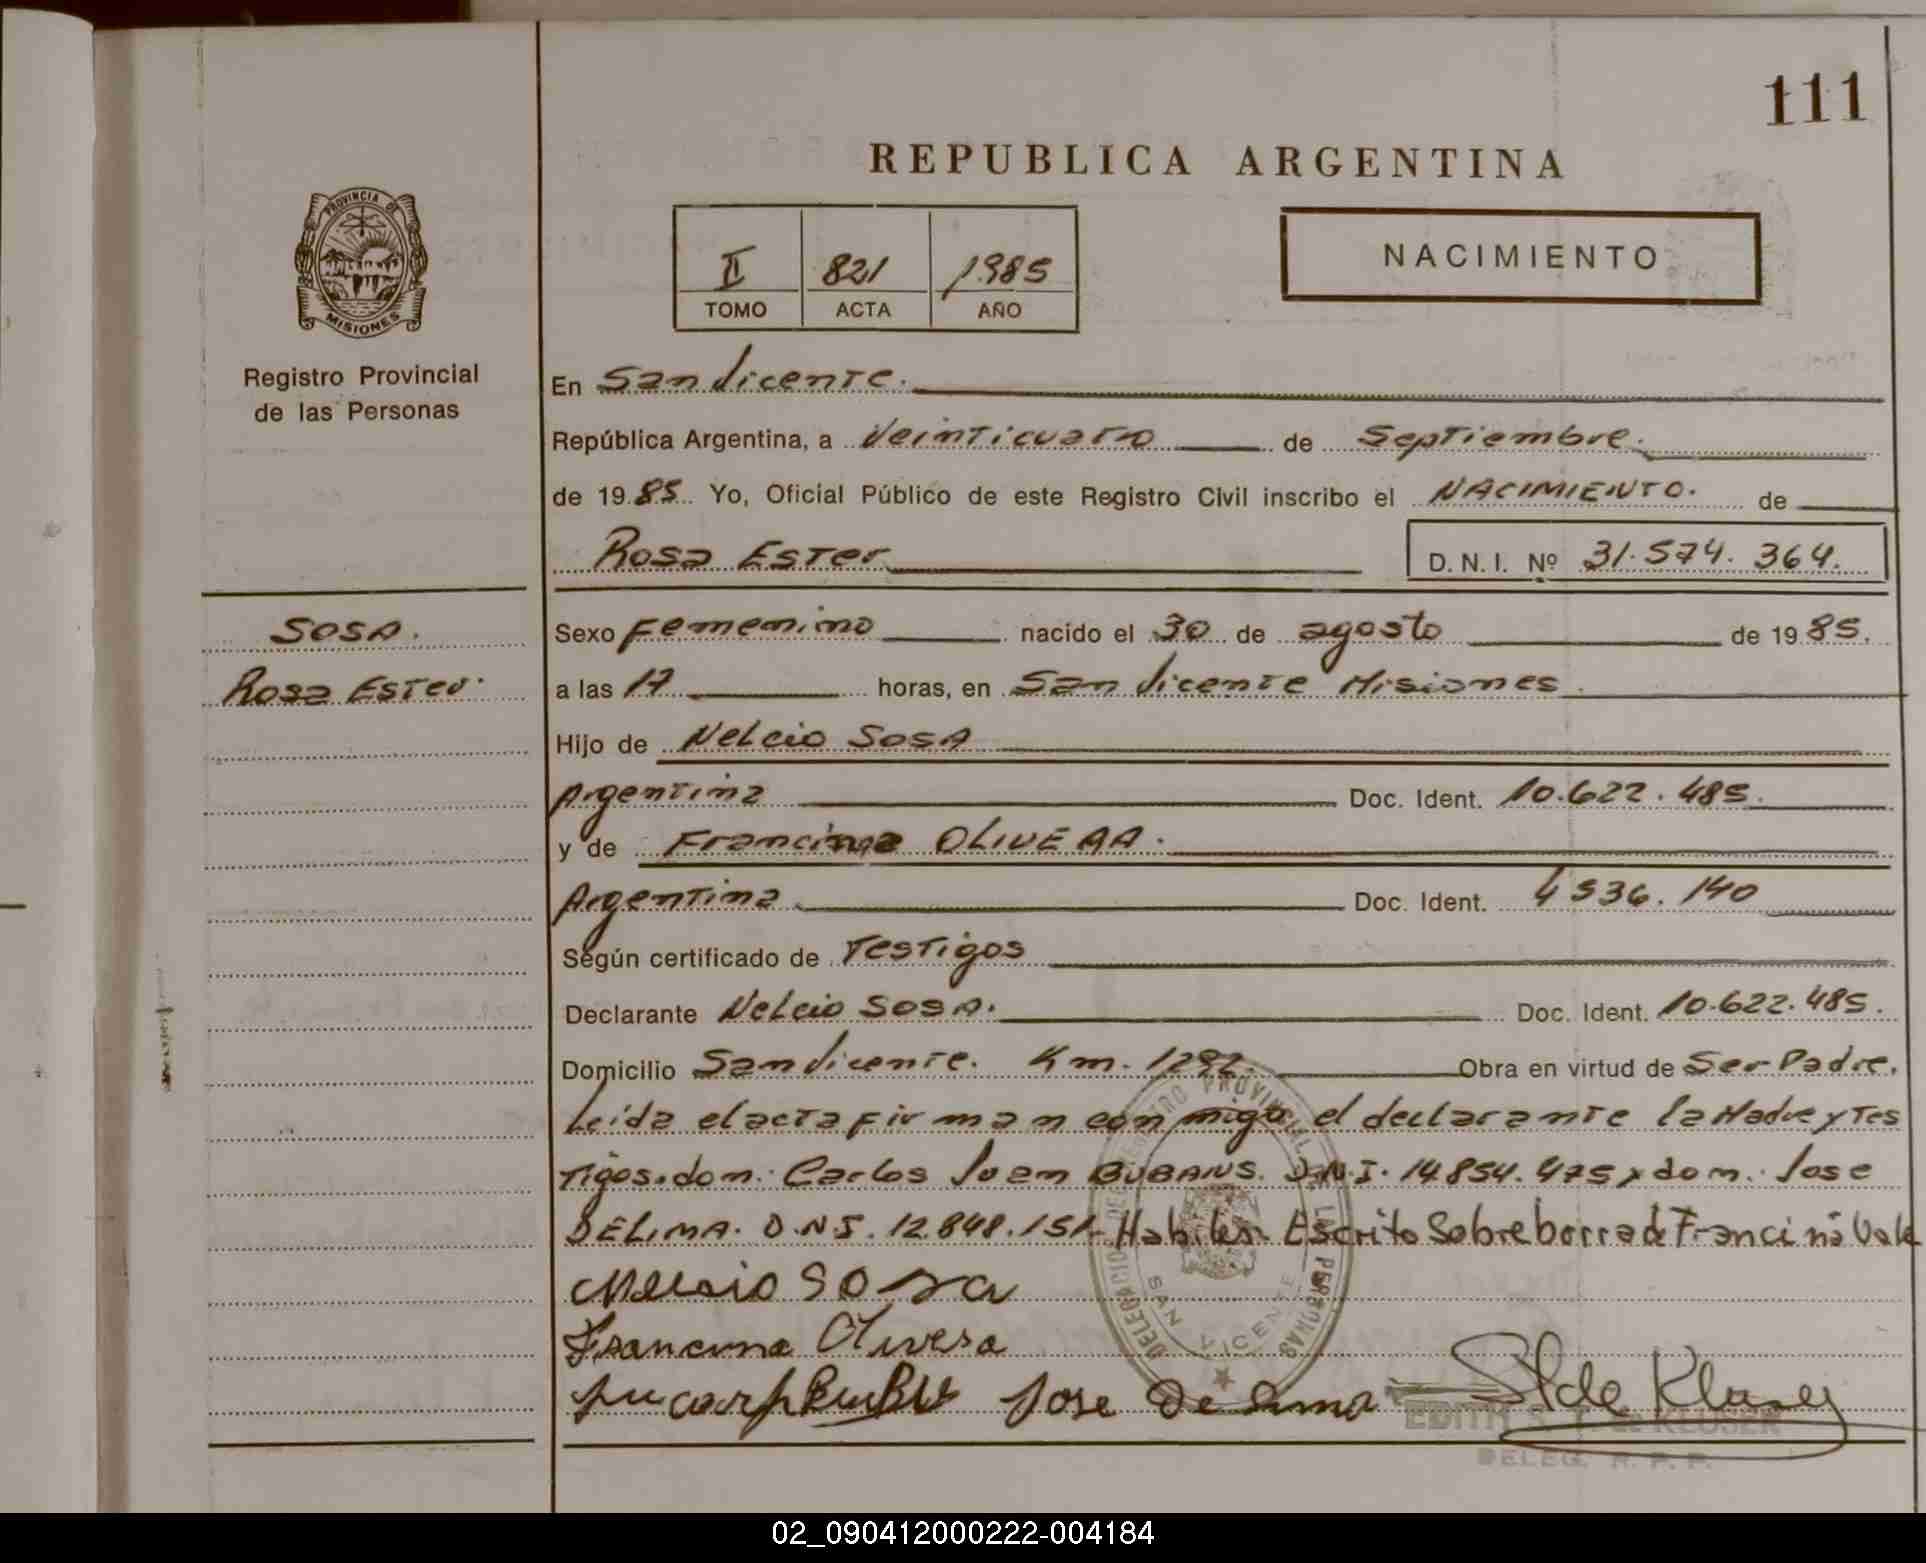 111
REPUBLICA ARGENTINA
PROVINCIA DE
MISIONES
II 821 1985
TOMO ACTA AÑO
NACIMIENTO
Registro Provincial
de las Personas
En San Vicente.
República Argentina, a Veinticuatro de Septiembre.
de 1985 Yo, Oficial Público de este Registro Civil inscribo el NACIMIENTO. de
Rosa Ester D. N. I. Nº 31.574.364.
SOSA.
Rosa Ester.
Sexo Femenino nacido el 30 de agosto de 1985.
a las 17 horas, en San Vicente Misiones
Hijo de Nelcio SOSA
Argentina Doc. Ident. 10.622.485.
y de Francina OLIVERA.
Argentina Doc. Ident. 4536.140
Según certificado de Testigos
Declarante Nelcio SOSA. Doc. Ident. 10.622.485.
Domicilio San Vicente. Km. 1292. Obra en virtud de Ser Padre.
Leída el acta firman conmigo el declarante la Madre y Tes
tigos. don: Carlos Juan D.N.I. 14.854.475 y don: Jose
DELIMA. D.N.I. 12.848.151- Habiles. Escrito Sobreborrado Francina Vale
Nelcio Sosa
Francina Olivera
Jose De Lima
DELEGACIO DEL REGISTRO PROVINCIAL DE LAS PERSONAS
SAN VICENTE
EDITH S. T. de KLUSER
DELEG. R. P. P.
02_090412000222-004184